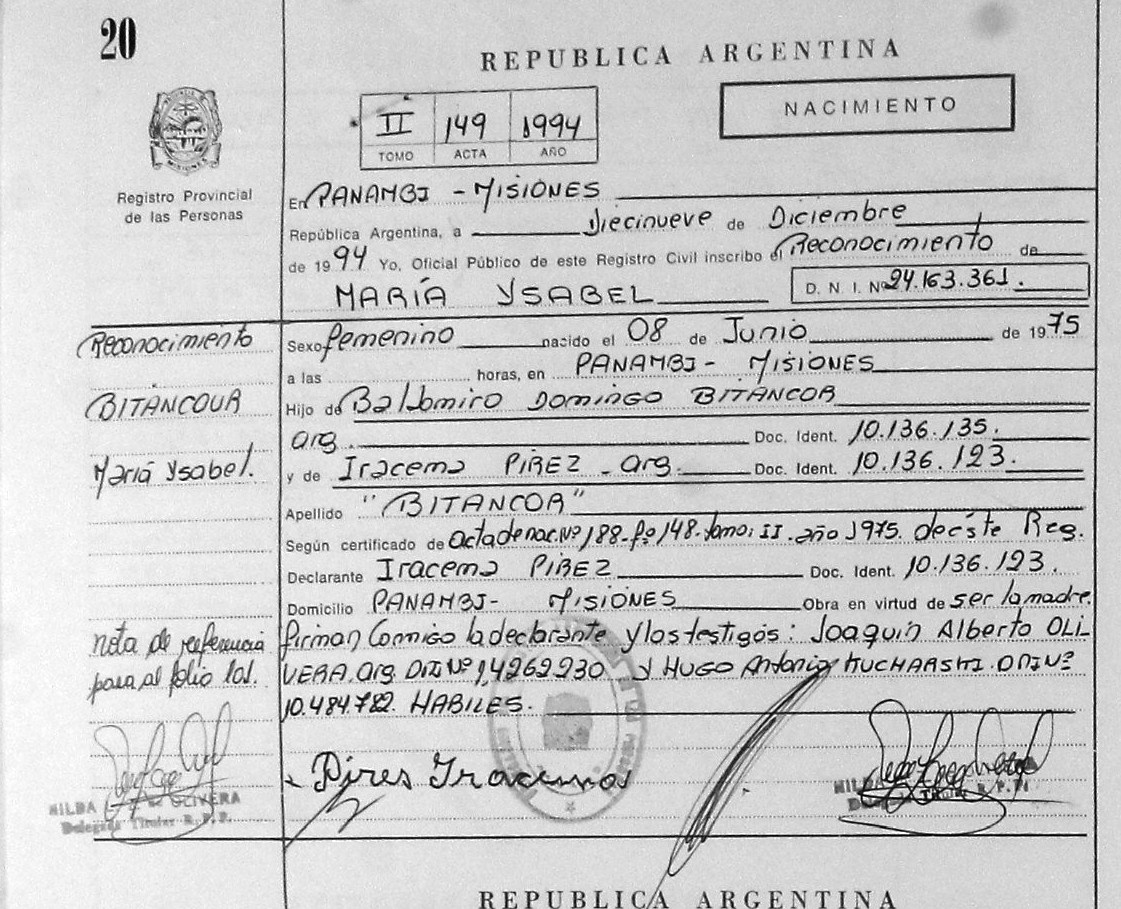 20
REPUBLICA ARGENTINA
II 149 1994
TOMO ACTA AÑO
NACIMIENTO
Registro Provincial
de las Personas
En PANAMBI - MISIONES
República Argentina, a Diecinueve de Diciembre
de 1994 Yo, Oficial Público de este Registro Civil inscribo el Reconocimiento de
MARÍA YSABEL D. N. I. Nº 24.163.361.
Reconocimiento
BITANCOUR
María Ysabel.
Sexo femenino nacido el 08 de Junio de 1975
a las horas, en PANAMBI - MISIONES
Hijo de Baldomiro DOMINGO BITANCOR
arg. Doc. Ident. 10.136.135.
y de Iracema PIREZ - arg. Doc. Ident. 10.136.123.
Apellido "BITANCOR"
Según certificado de acta de nac. Nº 188 - fº 148 - tomo: II . año 1975. de éste Reg.
Declarante Iracema PIREZ Doc. Ident. 10.136.123.
Domicilio PANAMBI - MISIONES Obra en virtud de ser la madre
nota de referencia
para al folio 101.
firman Conmigo la declarante y los testigos: Joaquín Alberto OLI
VERA. arg. DNI Nº 14262230 y HUGO Antonio KUCHARSKI. DNI Nº
10.484.782. HABILES.
Pires Iracema
HILDA OLIVERA
Delegada Titular R. P. P.
HILDA
REPUBLICA ARGENTINA